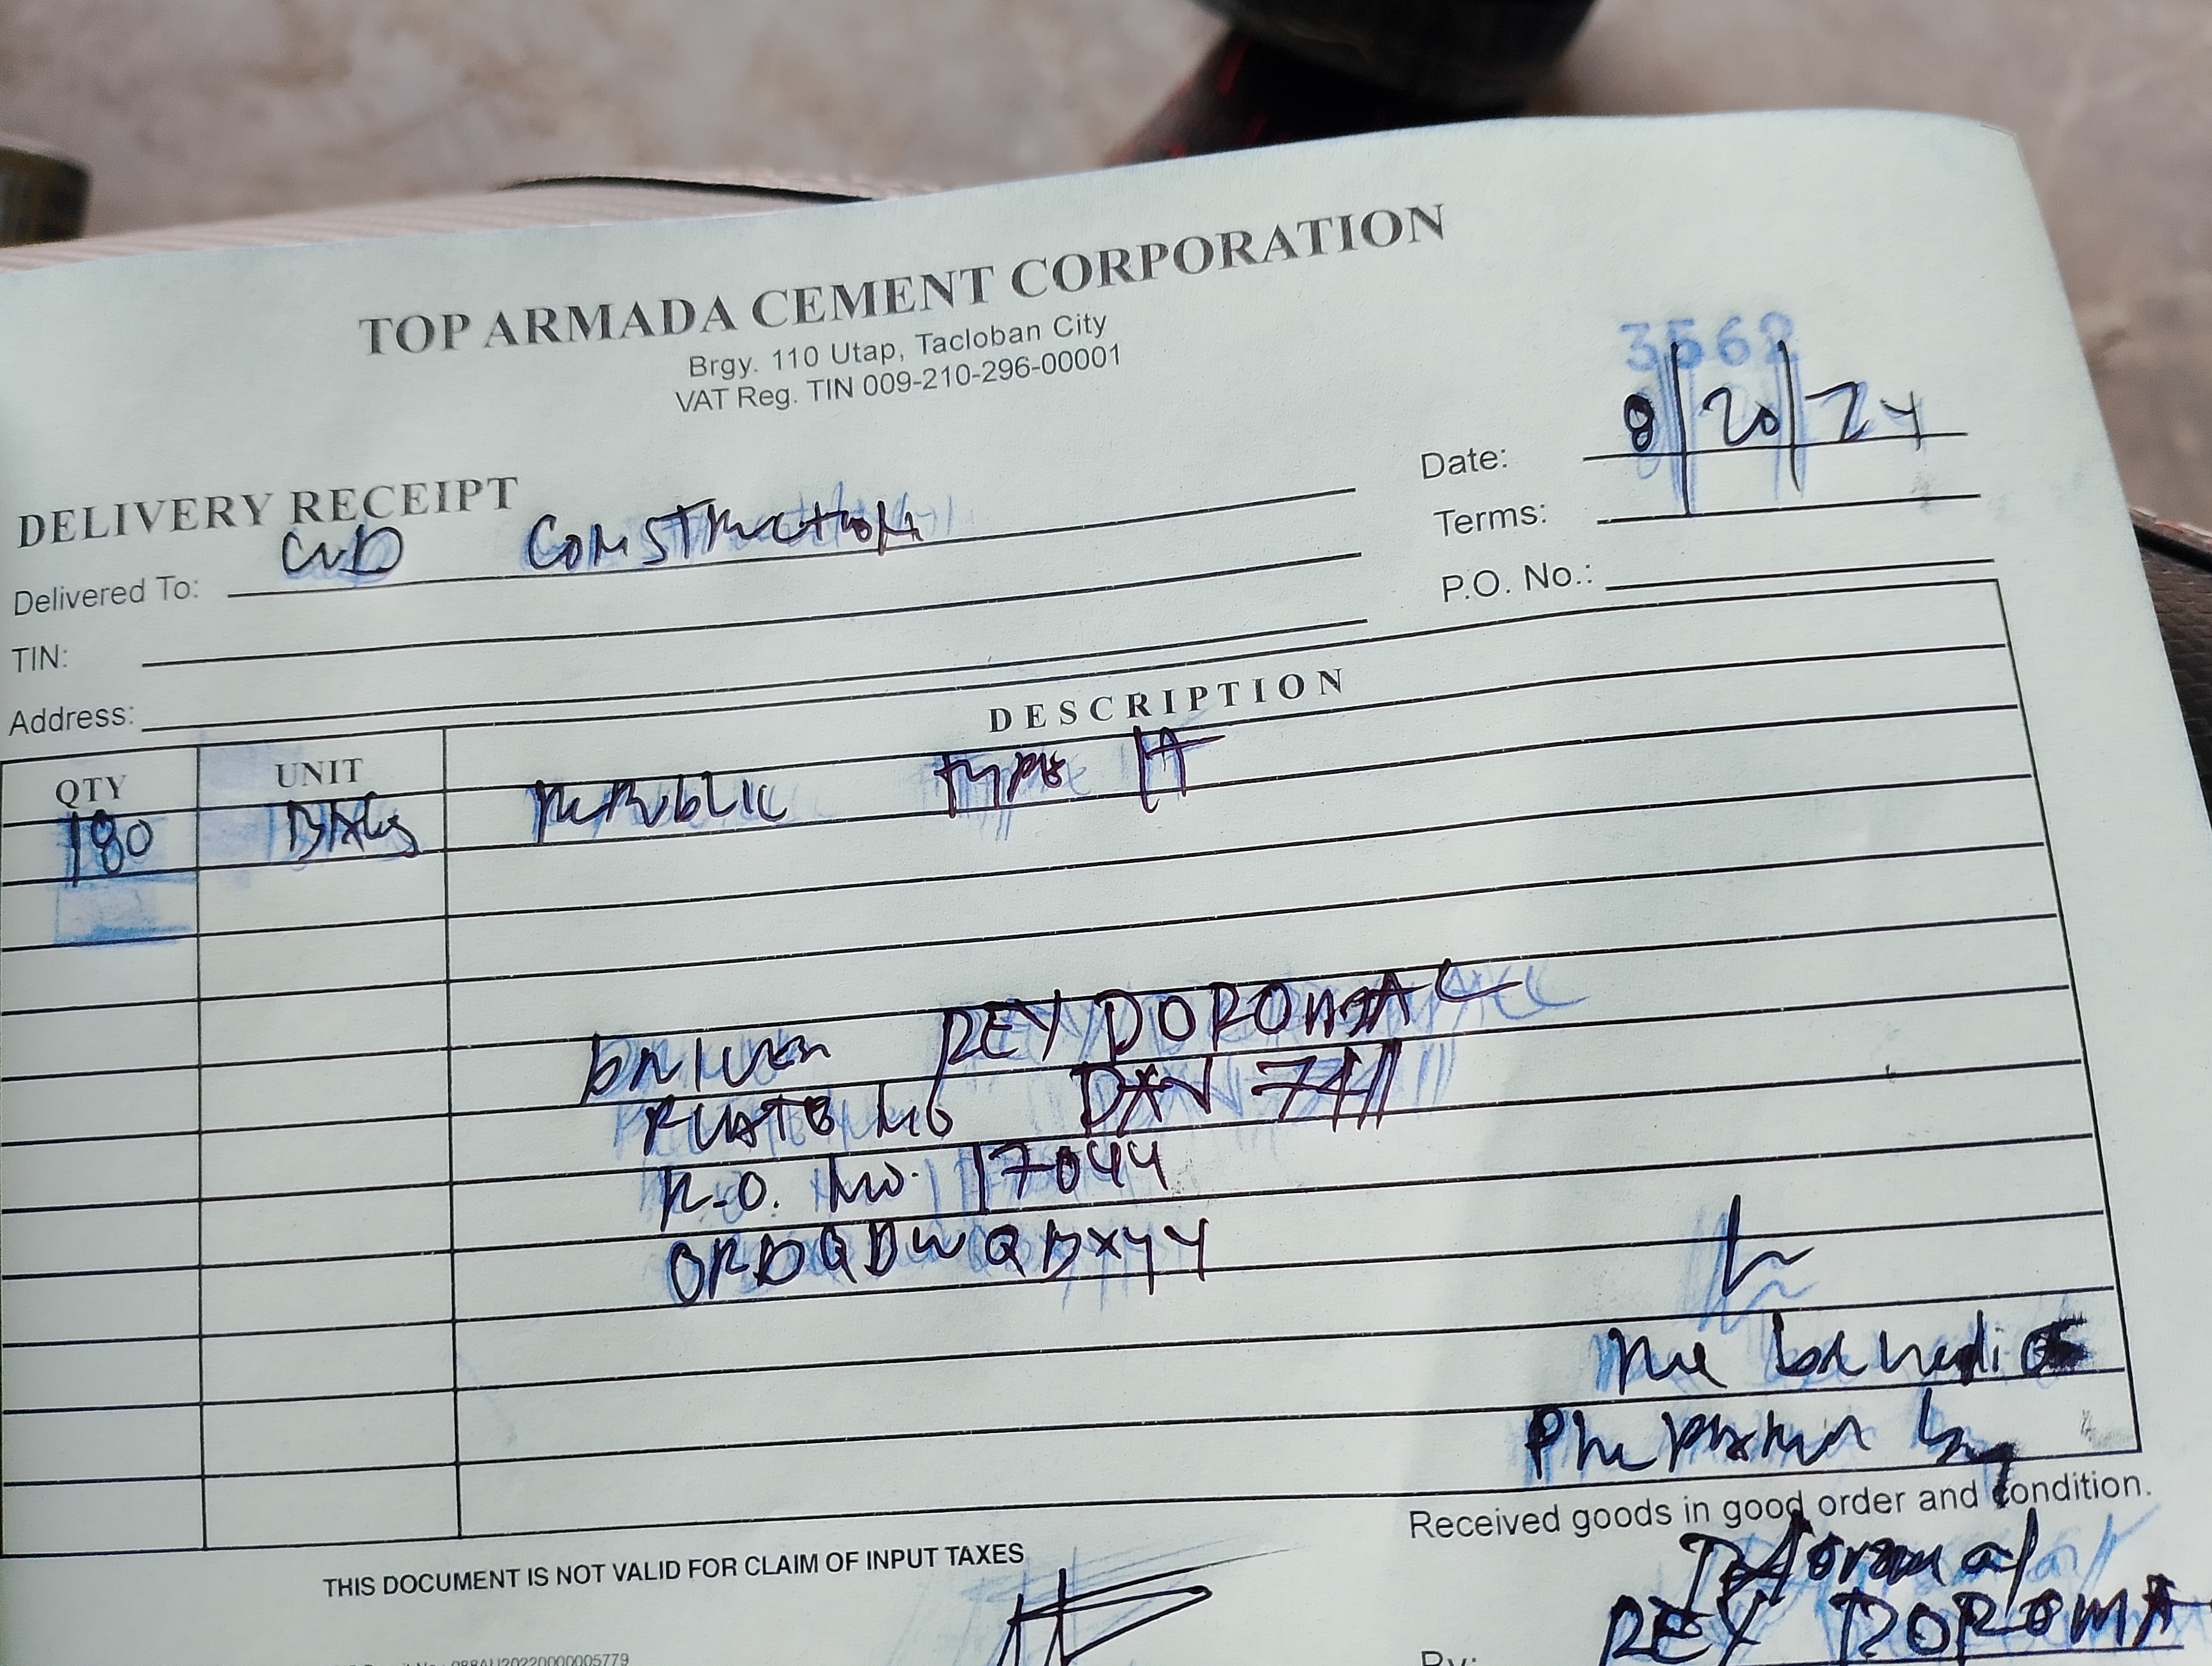 TOP ARMADA CEMENT CORPORATION
Brgy. 110 Utap, Tacloban City
VAT Reg. TIN 009-210-296-00001
3562
DELIVERY RECEIPT
Date: 8/20/24
Delivered To: CVD CONSTRUCTION
Terms:
TIN:
P.O. No.:
Address:
QTY UNIT DESCRIPTION
180 BAGS REPUBLIC TYPE 1T
DRIVER REY DOROMAL
PLATE NO DAV 7411
R.O. NO. 17044
ORDQDWQBXYY
Prepared by
Received goods in good order and condition.
THIS DOCUMENT IS NOT VALID FOR CLAIM OF INPUT TAXES
REY DOROMA
By:
088AU20220000005779